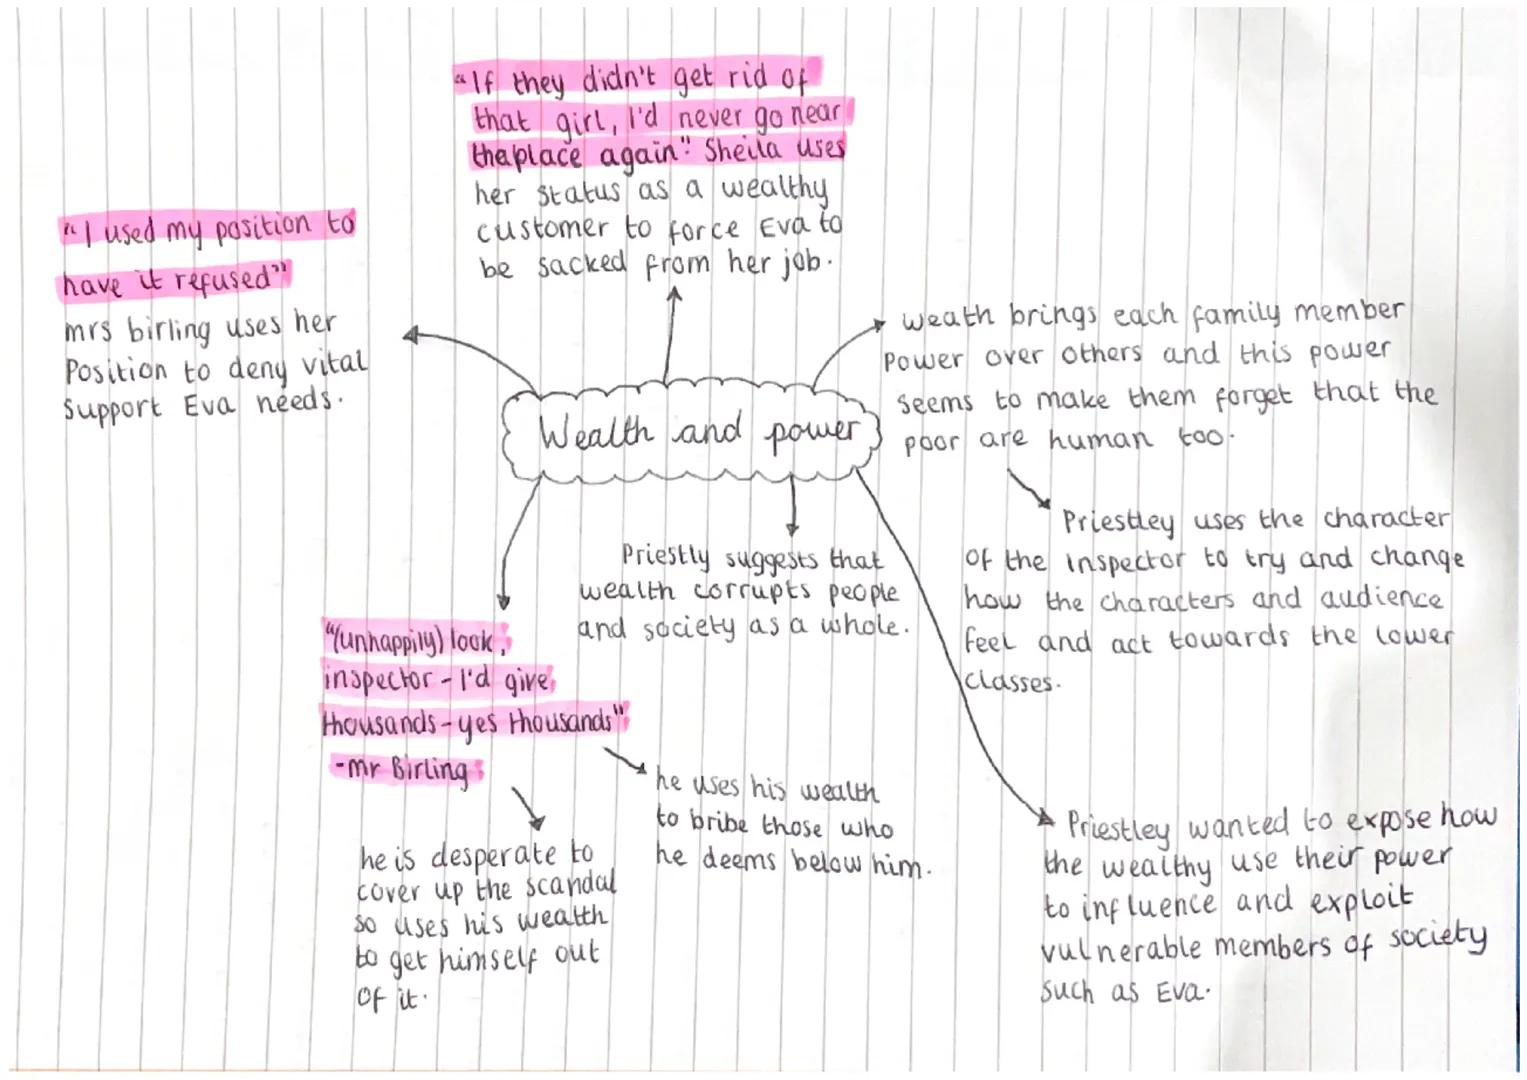 "If they didn't get rid of
that girl, I'd never go near
the place again". Sheila uses
her status as a wealthy
customer to force Eva to
be sacked from her job.
"I used my position to
have it refused"
mrs birling uses her
Position to deny vital
Support Eva needs.
Weath brings each family member
Power over others and this power
seems to make them forget that the
poor are human too.
Wealth and power
Priestley uses the character
of the inspector to try and change
how the characters and audience
feel and act towards the lower
classes.
Priestly suggests that
wealth corrupts people
and society as a whole.
"(unhappily) look,
inspector - I'd give
thousands - yes thousands"
- Mr Birling
he uses his wealth
to bribe those who
he deems below him.
he is desperate to
cover up the scandal
so uses his wealth
to get himself out
of it.
Priestley wanted to expose how
the wealthy use their power
to influence and exploit
vulnerable members of society
such as Eva.